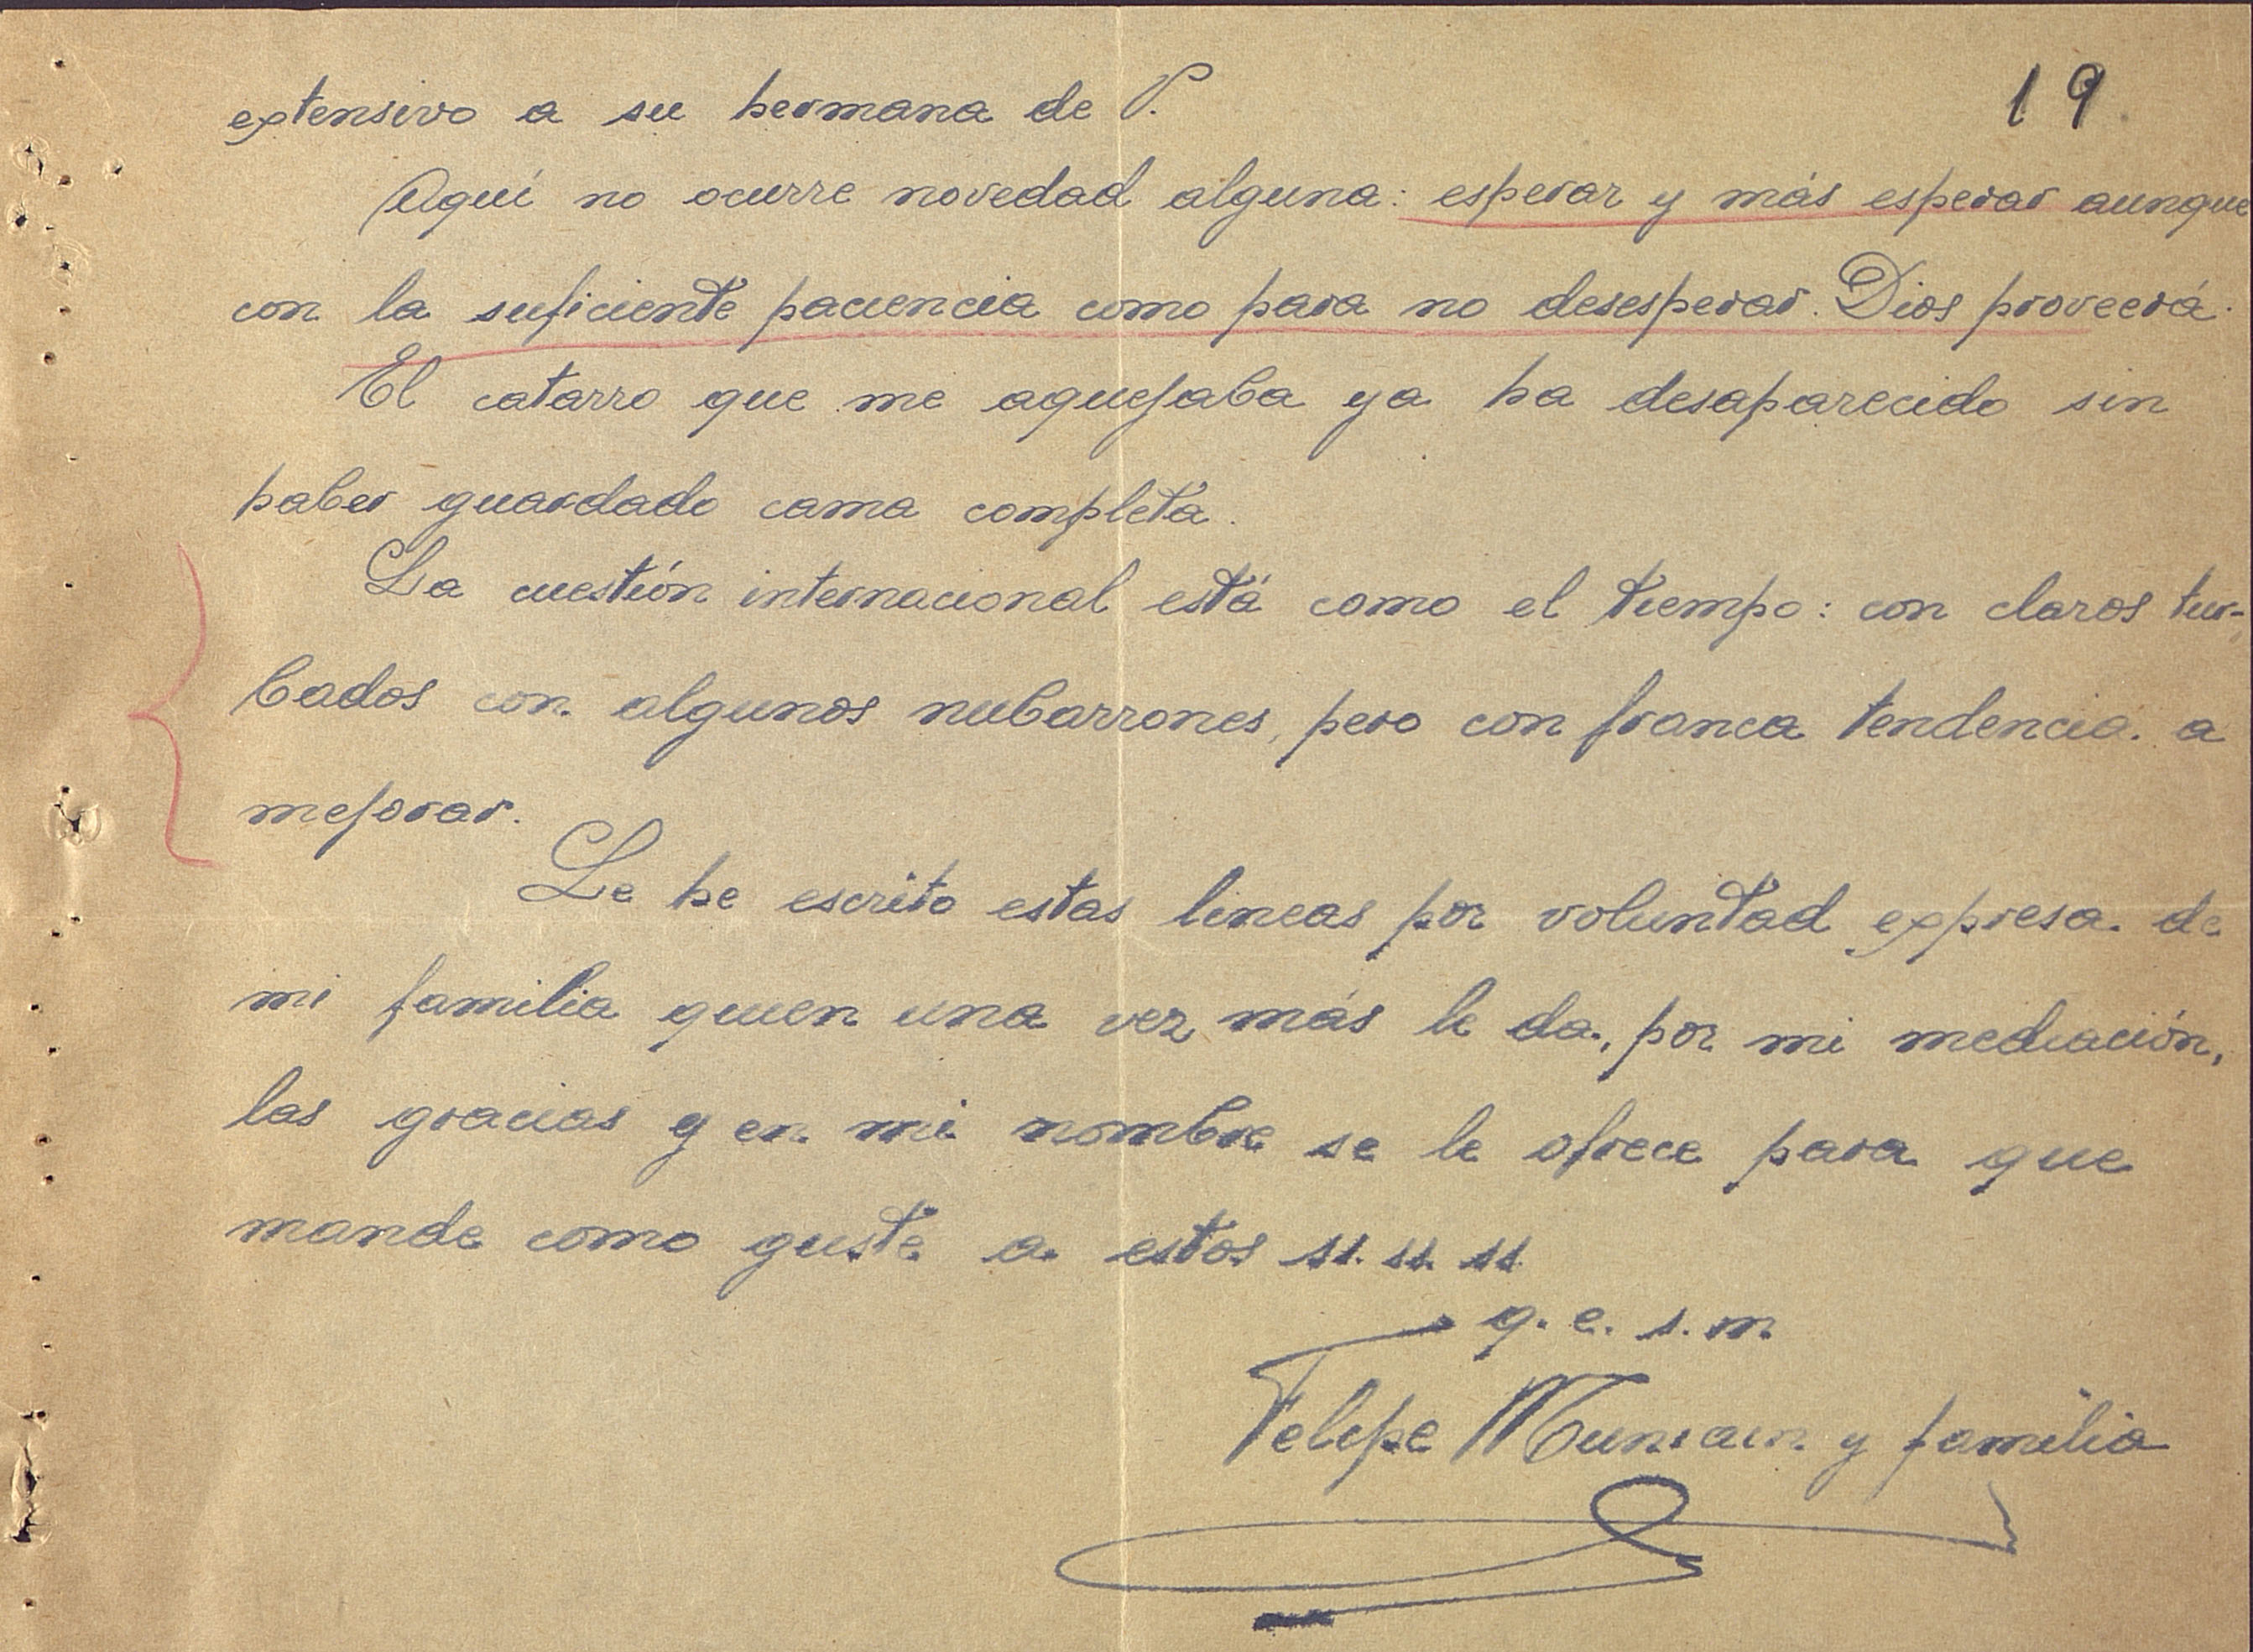 19
extensivo a su hermana de P.
Aquí no ocurre novedad alguna: esperar y más esperar aunque
con la suficiente paciencia como para no desesperar. Dios proveerá.
El catarro que me aquejaba ya ha desaparecido sin
haber guardado cama completa.
La cuestión internacional está como el tiempo: con claros tur-
bados con algunos nubarrones, pero con franca tendencia a
mejorar.
Le he escrito estas lineas por voluntad expresa de
mi familia quien una vez más le da, por mi mediación,
las gracias y en mi nombre se le ofrece para que
mande como guste a estos ss. ss. ss.
q. e. s. m.
Felipe Muniain y familia